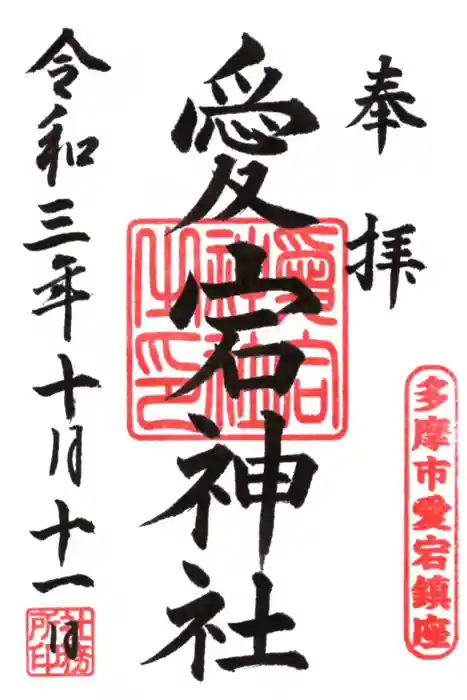 奉拝
多摩市愛宕鎮座
愛宕神社
愛宕神社之印
令和三年十月十一日
社務所印